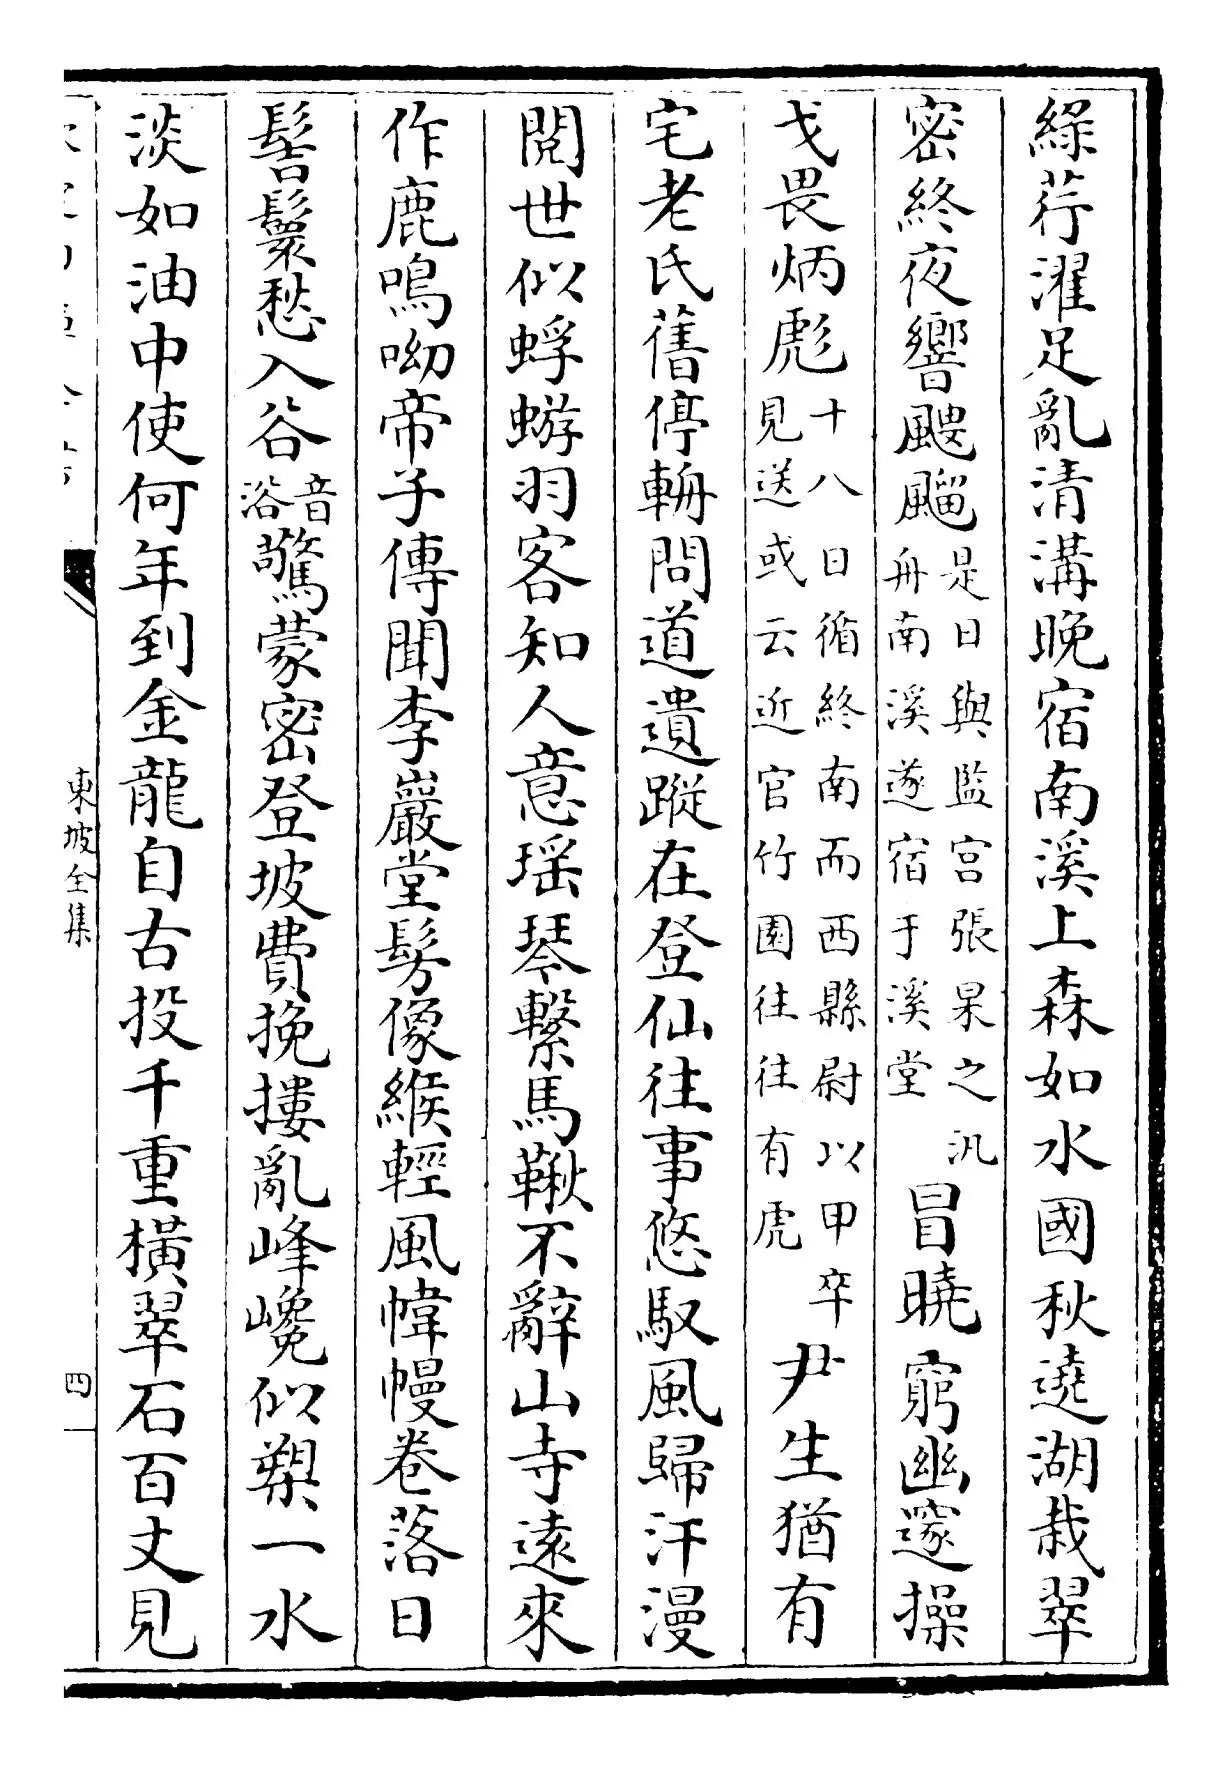 綠荇濯足亂清溝晚宿南溪上森如水國秋遶湖栽翠
密終夜響颼飀是日與監宮張杲之汎舟南溪遂宿于溪堂冒曉窮幽邃操
戈畏炳彪十八日循終南而西縣尉以甲卒見送或云近官竹園往往有虎尹生猶有
宅老氏舊停輈問道遺蹤在登仙往事悠馭風歸汗漫
閱世似蜉蝣羽客知人意瑶琴繫馬鞦不辭山寺遠來
作鹿鳴呦帝子傳聞李巖堂髣像緱輕風幃幔卷落日
髻鬟愁入谷音浴驚蒙密登坡費挽摟亂峰巉似槊一水
淡如油中使何年到金龍自古投千重橫翠石百丈見
東坡全集
四